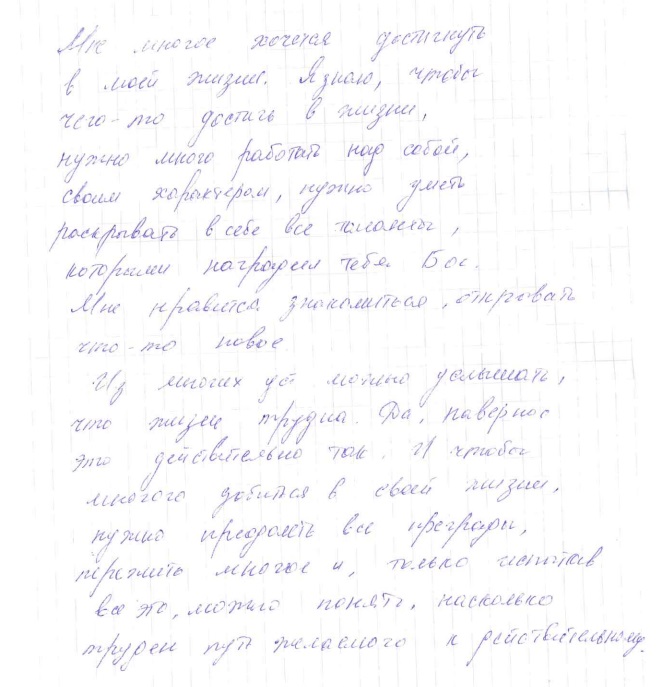 Мне многое хочется достигнуть
в моей жизни. Я знаю, чтобы
чего-то достичь в жизни,
нужно много работать над собой,
своим характером, нужно уметь
раскрывать в себе все таланты,
которыми наградил тебя Бог.
Мне нравится знакомиться, открывать
что-то новое.
Из многих уст можно услышать,
что жизнь трудна. Да, наверное
это действительно так. И чтобы
многого добиться в своей жизни,
нужно преодолеть все преграды,
пережить многое и, только испытав
все это, можно понять, насколько
труден путь желаемого к действительному.